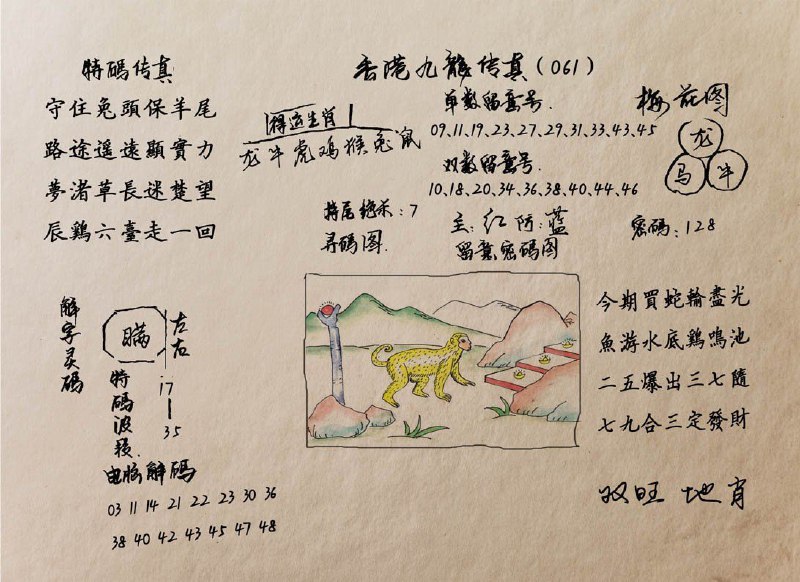 特碼传真
守住兔頭保羊尾
路途遥遠顯實力
夢渚草長迷楚望
辰鷄六臺走一回
香港九龍传真(061)
得运生肖
龙牛虎鸡猴兔鼠
单数留意号.
09,11,19,23,27,29,31,33,43,45
双数留意号.
10,18,20,34,36,38,40,44,46
特尾绝杀:7
主:红防:蓝
密码:128
寻码图.
留意密码图
梅花图
龙
马牛
解字灵码
瞒
左右
特碼波段.
17—35
电脑解碼
03 11 14 21 22 23 30 36
38 40 42 43 45 47 48
今期買蛇輸盡光
魚游水底鷄鳴池
二五爆出三七隨
七九合三定發財
双旺 地肖